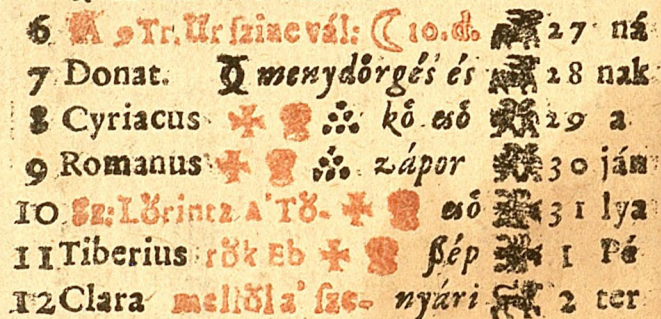 6 A Tr. Ur szine vál: ☾ 10. d. 27 ná
7 Donat. menydőrgés és 28 nak
8 Cyriacus kő eső 29 a
9 Romanus zápor 30 ján
10 Sz: Lőrintz A' Tő- eső 31 lya
11 Tiberius rők Eb ſzép 1 Pé
12 Clara mellől a' ſze- nyári 2 ter